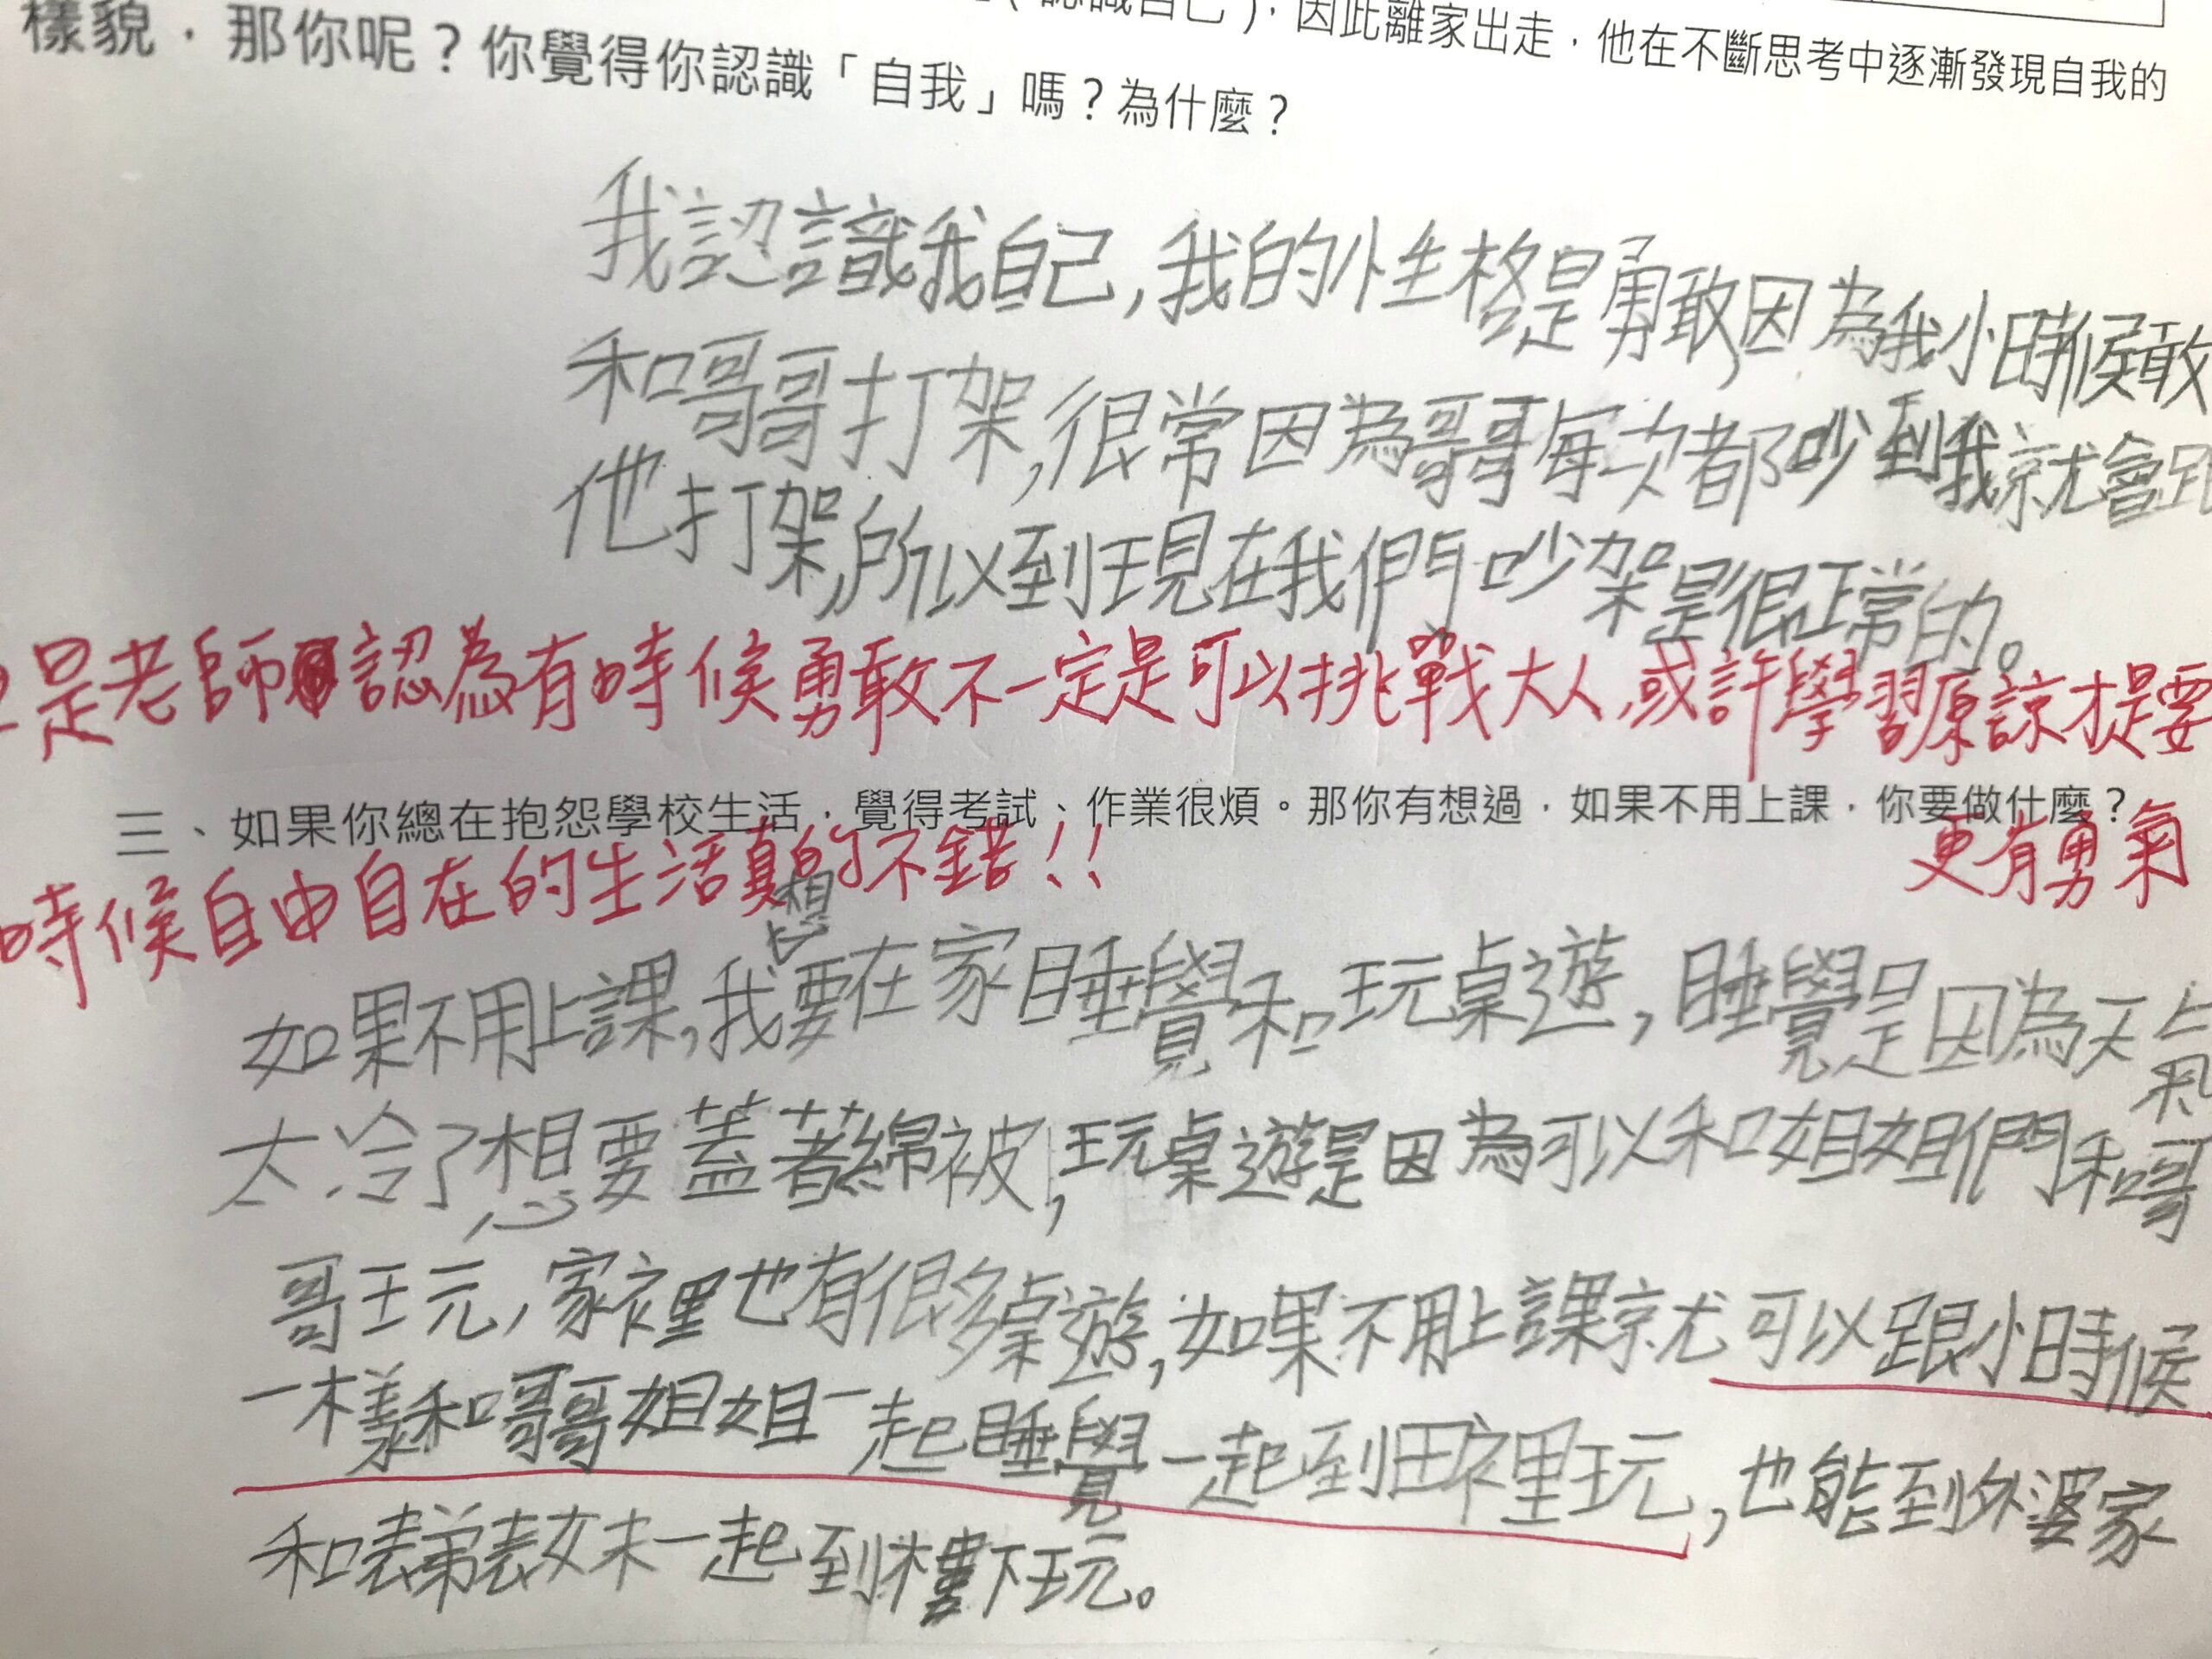 認識自己)，因此離家出走，他在不斷思考中逐漸發現自我的
樣貌，那你呢？你覺得你認識「自我」嗎？為什麼？
我認識我自己,我的性格是勇敢,因為我小時候敢
和哥哥打架,很常因為哥哥每次都吵到我就會跟
他打架,所以到現在我們吵架是很正常的。
是老師認為有時候勇敢不一定是可以挑戰大人,或許學習原諒才是要
三、如果你總在抱怨學校生活，覺得考試、作業很煩。那你有想過，如果不用上課，你要做什麼？
更有勇氣
時候自由自在的生活真的不錯!!
如果不用上課,我想要在家睡覺和玩桌遊,睡覺是因為天氣
太冷了想要蓋著綿被,玩桌遊是因為可以和姐姐們和哥
哥玩,家裡也有很多桌遊,如果不用上課就可以跟小時候
一樣和哥哥姐姐一起睡覺一起到田裡玩,也能到外婆家
和表弟表妹一起到樓下玩。